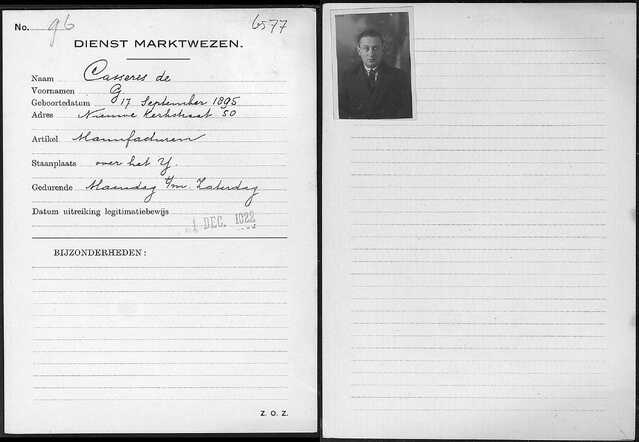 No. 96 6577
DIENST MARKTWEZEN.
Naam Casseres de
Voornamen G
Geboortedatum 17 September 1895
Adres Nieuwe Kerkstraat 50
Artikel Manufacturen
Staanplaats over het Y.
Gedurende Maandag t/m Zaterdag
Datum uitreiking legitimatiebewijs
1 DEC. 1922
BIJZONDERHEDEN:
Z. O. Z.